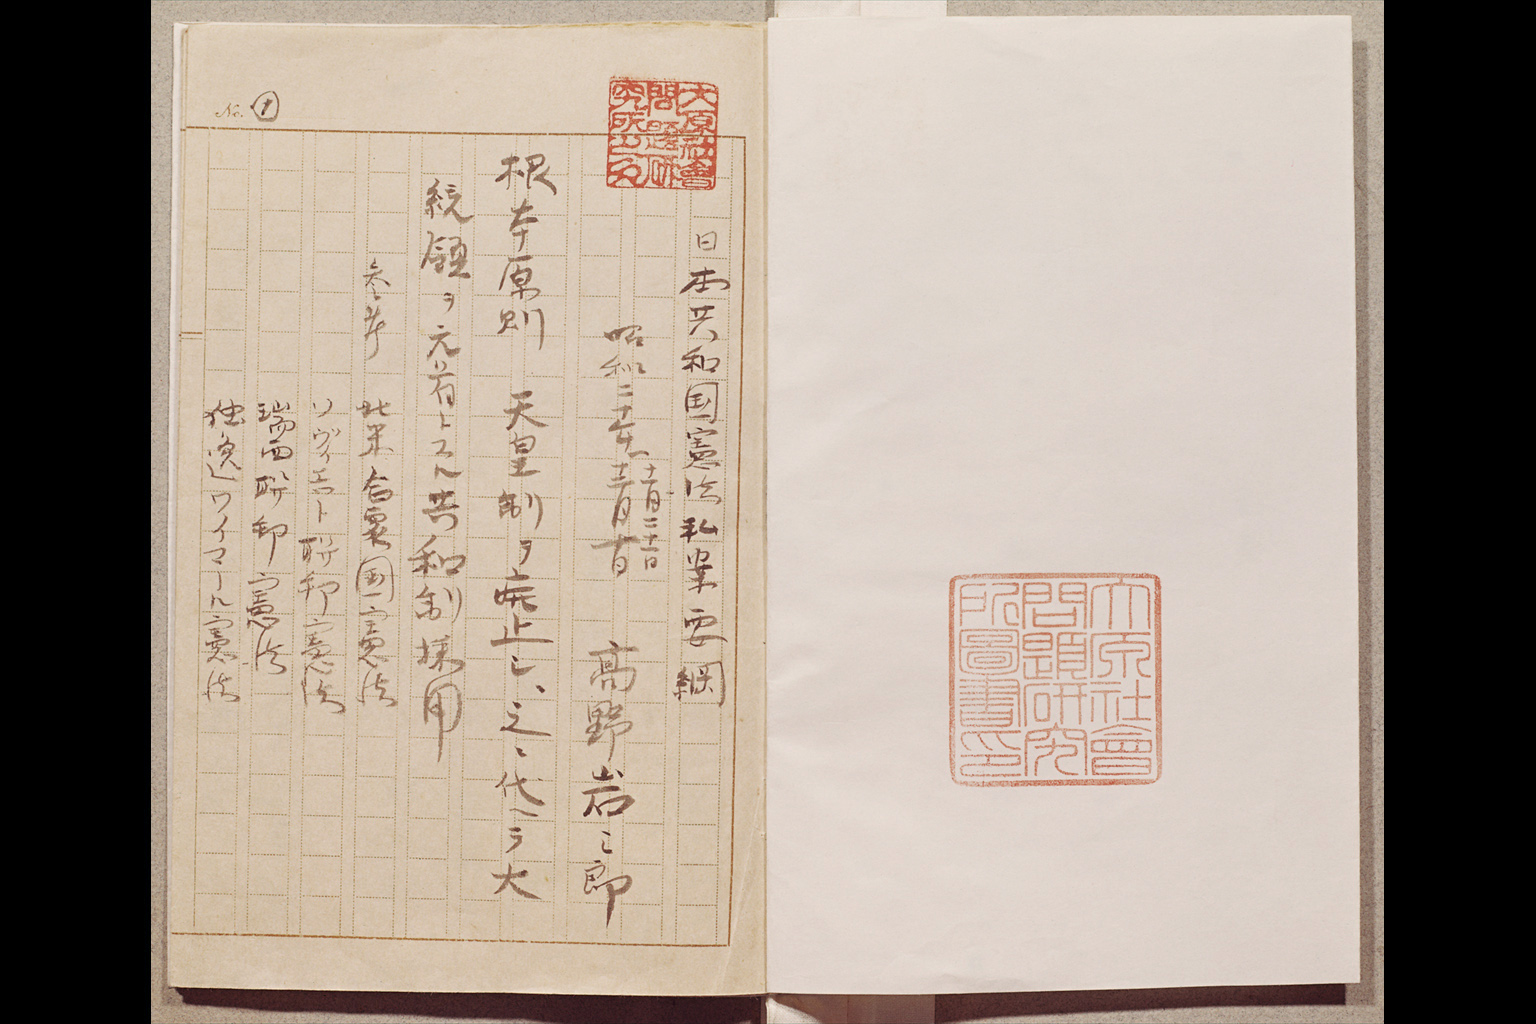 大原社會
問題研究
所圖書印
大原社會
問題研
究所
日本共和国憲法私案要綱
十一月二十一日
昭和二十年 十二月十日 高野岩三郎
根本原則 天皇制ヲ廃止シ、之ニ代ヘテ大
統領ヲ元首トスル共和制採用
参考 北米合衆国憲法
ソヴィエト聯邦憲法
瑞西聯邦憲法
独逸ワイマール憲法
No. 1